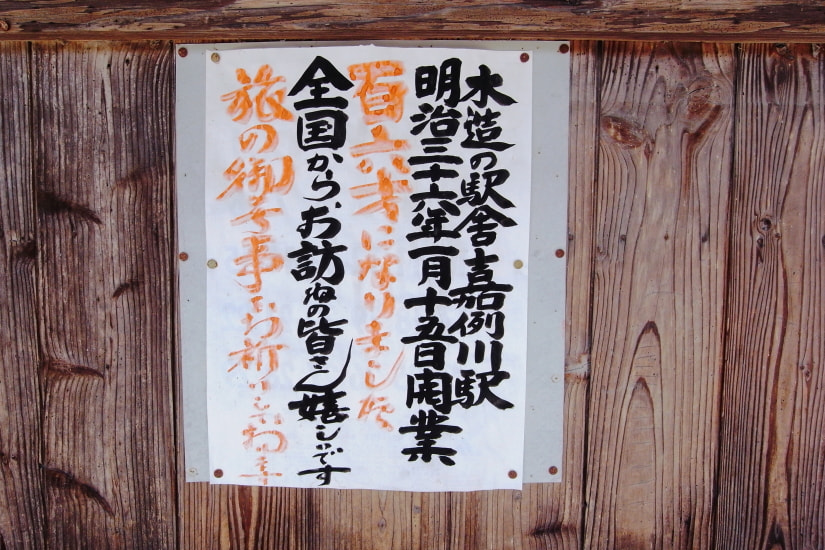 木造の駅舎嘉例川駅
明治三十六年一月十五日開業
百六才になりました
全国からお訪ねの皆さん嬉しいです
旅の御無事をお祈りします